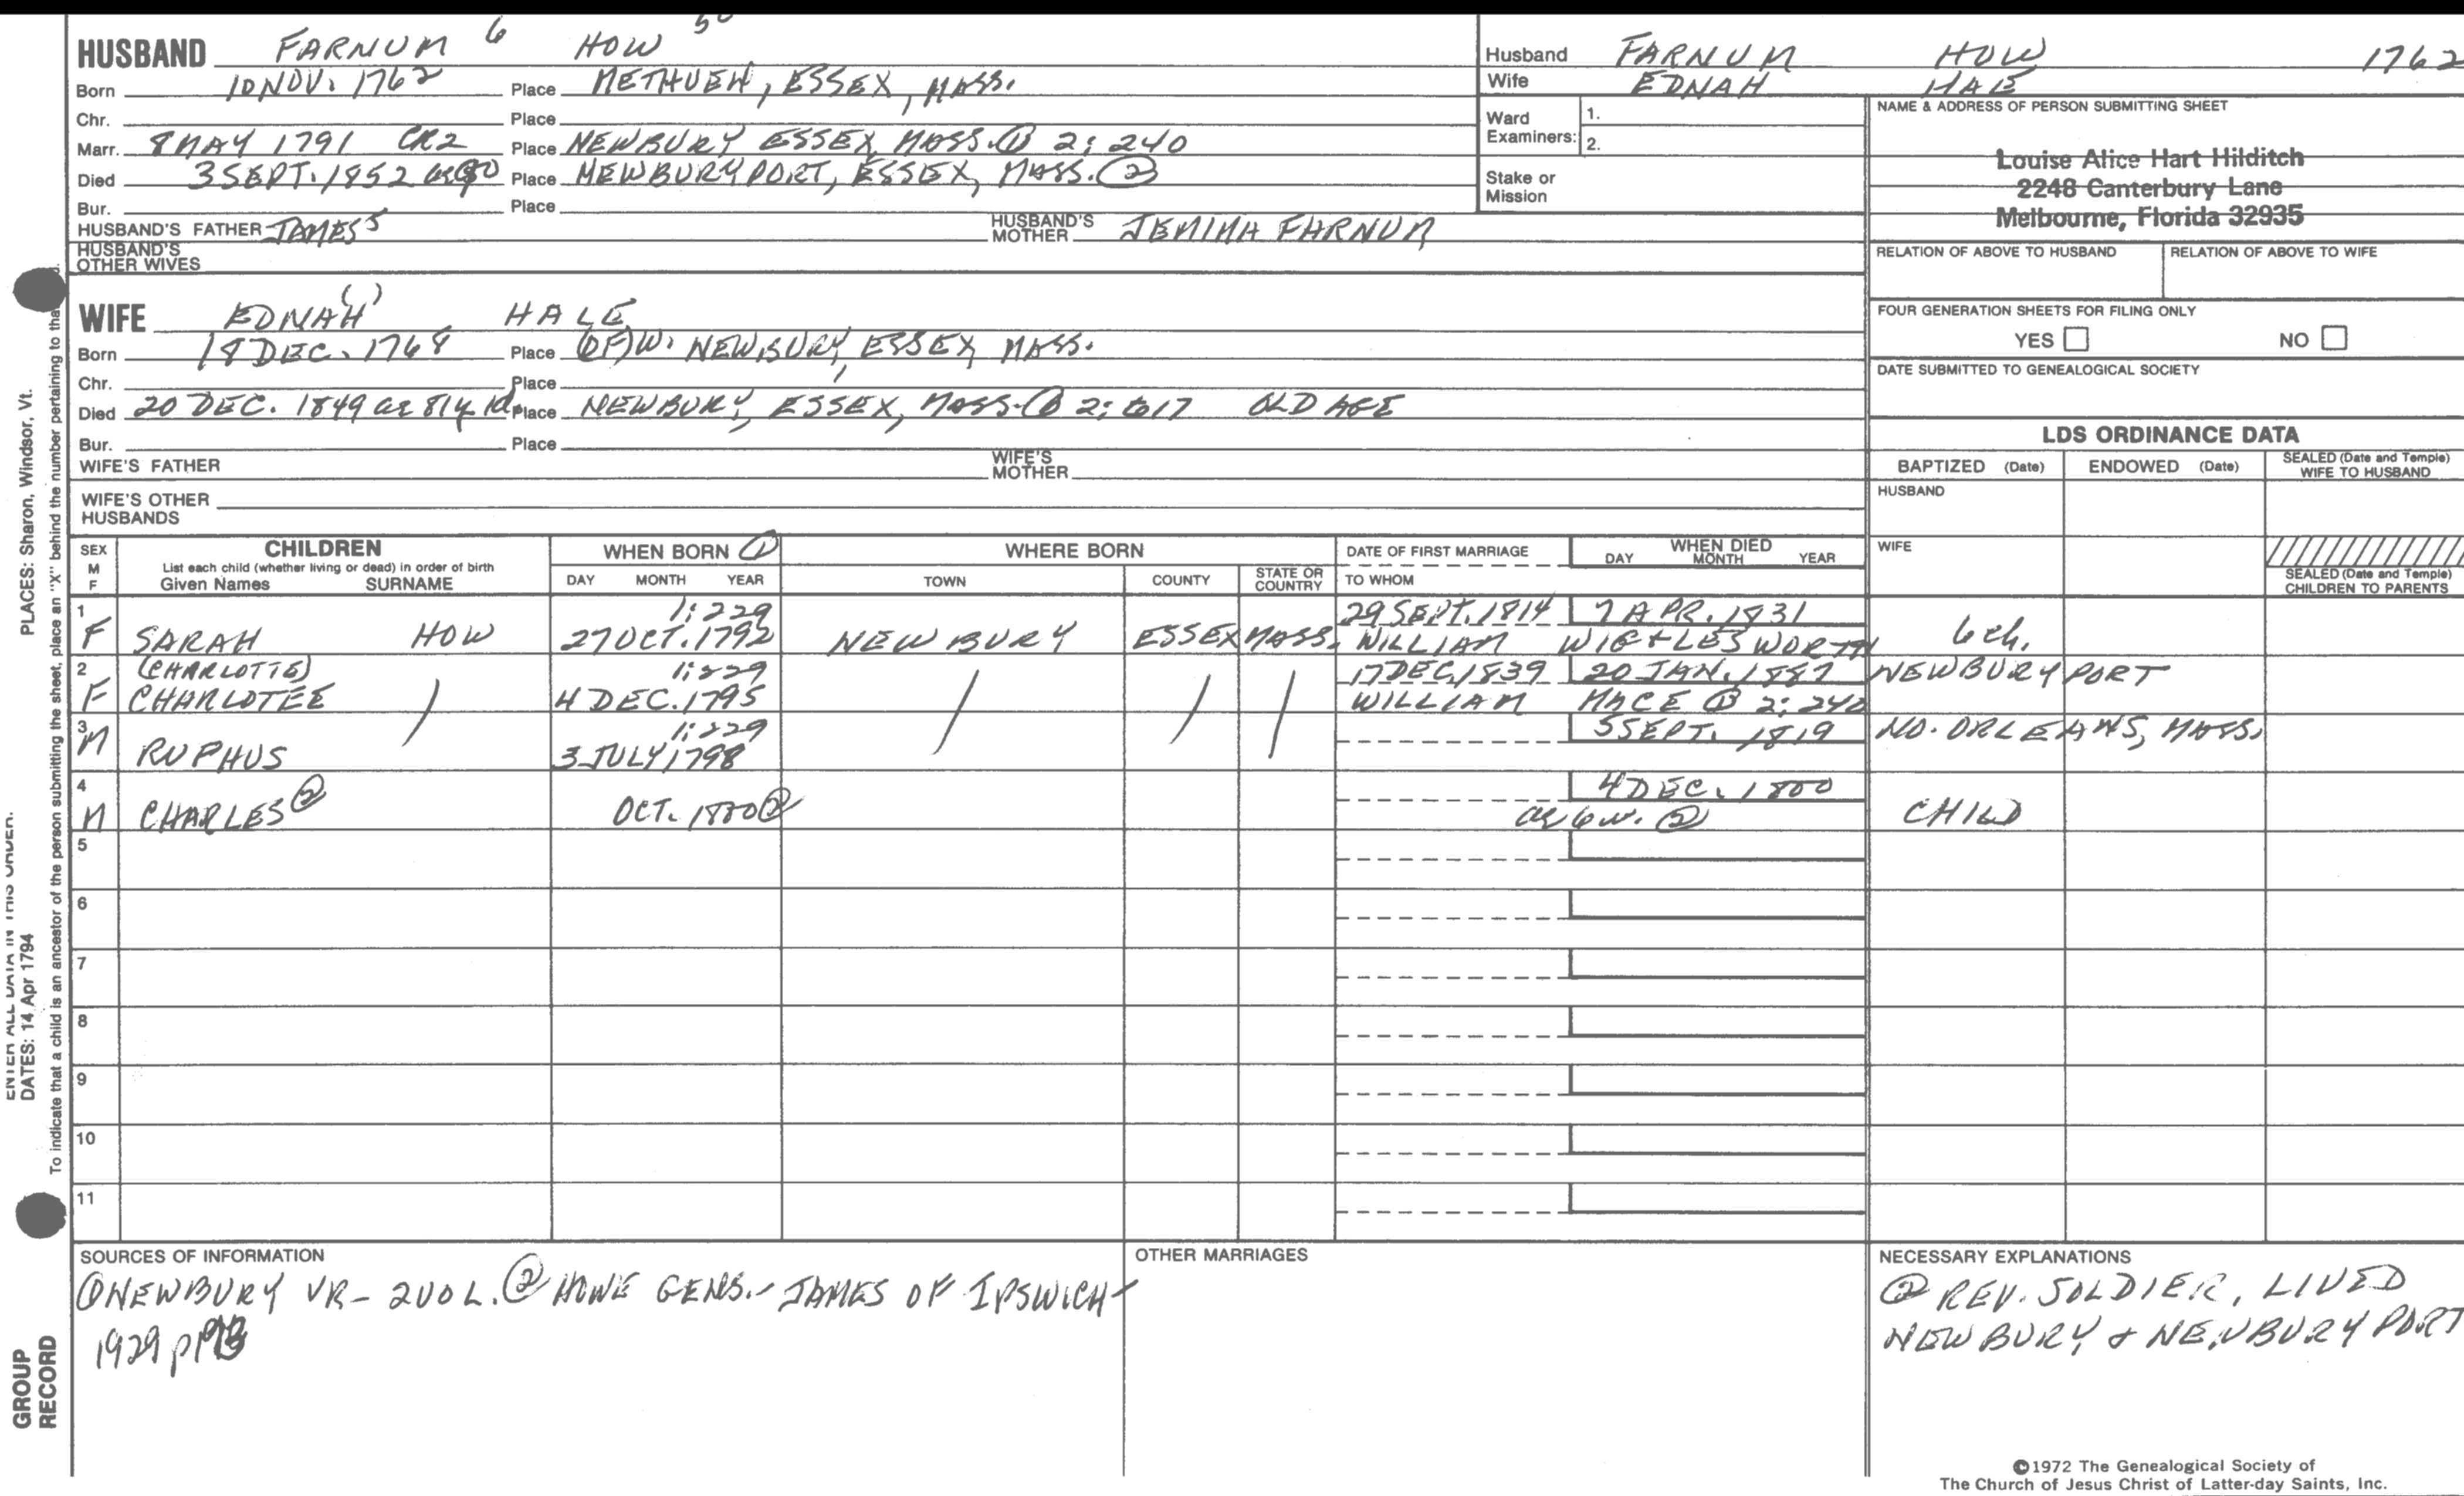 HUSBAND FARNUM 6 HOW 50
Born 10 NOV. 1762 Place METHUEN, ESSEX, MASS.
Chr. Place
Marr. 8 MAY 1791 CR2 Place NEWBURY ESSEX, MASS. ① 2:240
Died 3 SEPT. 1852 ae 90 Place NEWBURYPORT, ESSEX, MASS. ②
Bur. Place
HUSBAND'S FATHER JAMES 5 HUSBAND'S MOTHER JEMIMA FARNUM
HUSBAND'S OTHER WIVES
Husband FARNUM HOW 1762
Wife EDNAH HALE
Ward Examiners: 1.
2.
Stake or Mission
NAME & ADDRESS OF PERSON SUBMITTING SHEET
Louise Alice Hart Hilditch
2248 Canterbury Lane
Melbourne, Florida 32935
RELATION OF ABOVE TO HUSBAND RELATION OF ABOVE TO WIFE
FOUR GENERATION SHEETS FOR FILING ONLY
YES NO
DATE SUBMITTED TO GENEALOGICAL SOCIETY
WIFE EDNAH ( ) HALE
Born 18 DEC. 1768 Place (OF) W. NEWBURY, ESSEX, MASS.
Chr. Place
Died 20 DEC. 1849 ae 81y 1d. Place NEWBURY, ESSEX, MASS. ① 2:617 OLD AGE
Bur. Place
WIFE'S FATHER WIFE'S MOTHER
WIFE'S OTHER HUSBANDS
LDS ORDINANCE DATA
BAPTIZED (Date) ENDOWED (Date) SEALED (Date and Temple) WIFE TO HUSBAND
HUSBAND
WIFE
SEALED (Date and Temple) CHILDREN TO PARENTS
SEX M F CHILDREN WHEN BORN ① WHERE BORN DATE OF FIRST MARRIAGE WHEN DIED
List each child (whether living or dead) in order of birth
Given Names SURNAME DAY MONTH YEAR TOWN COUNTY STATE OR COUNTRY TO WHOM DAY MONTH YEAR
1 1:229 29 SEPT. 1814 7 APR. 1831
F SARAH HOW 27 OCT. 1792 NEWBURY ESSEX MASS. WILLIAM WIGGLESWORTH 6 ch.
2 (CHARLOTTE) 1:229 17 DEC. 1839 20 JAN. 1887 NEWBURYPORT
F CHARLOTEE 4 DEC. 1795 WILLIAM MACE ① 2:240
3 1:229 5 SEPT. 1819 NO. ORLEANS, MASS.
M RUPHUS 3 JULY, 1798
4 4 DEC. 1800
M CHARLES ② OCT. 1800 ② ae 6w. ② CHILD
5
6
7
8
9
10
11
SOURCES OF INFORMATION
① NEWBURY VR - 2 VOL. ② HOWE GENS. - JAMES OF IPSWICH -
1929
OTHER MARRIAGES
NECESSARY EXPLANATIONS
② REV. SOLDIER, LIVED
NEWBURY & NEWBURYPORT
©1972 The Genealogical Society of
The Church of Jesus Christ of Latter-day Saints, Inc.
PLACES: Sharon, Windsor, Vt.
ENTER ALL DATA IN THIS ORDER:
DATES: 14 Apr 1794
To indicate that a child is an ancestor of the person submitting the sheet, place an "X" behind the number pertaining to that
GROUP
RECORD